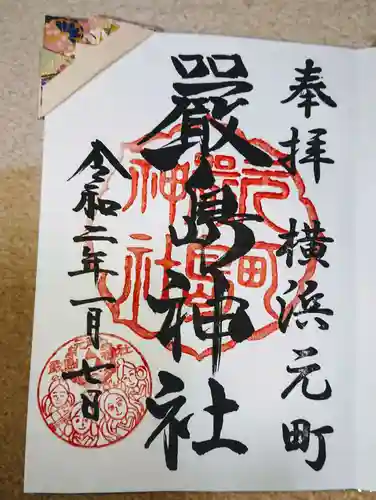 奉拝 横浜元町
嚴島神社
令和二年一月七日
元町
嚴島
神社